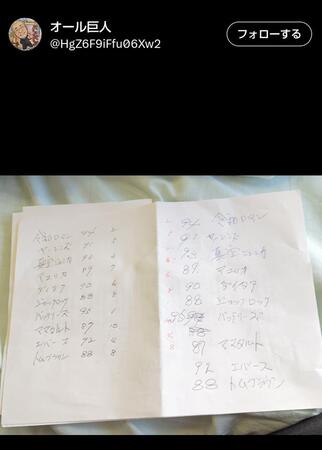 オール巨人
@HgZ6F9iFfu06Xw2
フォローする
令和ロマン
ヤーレンズ 91
真空ジェシカ
マユリカ 89
ダイタク 90
ジョックロック 88
バッテリーズ
ママタルト 87 10
エバース 92 4
トムブラウン 88 8
令和ロマン
ヤーレンズ
真空ジェシカ
89 マユリカ
90 ダイタク
88 ジョックロック
バッテリーズ
87 ママタルト
92 エバース
88 トムブラウン